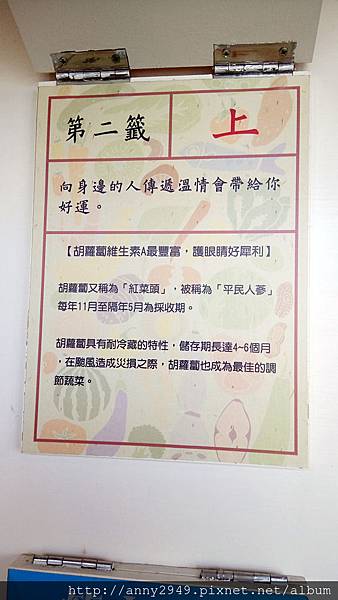 第二籤
上
向身邊的人傳遞溫情會帶給你
好運。
【胡蘿蔔維生素A最豐富，護眼睛好犀利】
胡蘿蔔又稱為「紅菜頭」，被稱為「平民人蔘」
每年11月至隔年5月為採收期。
胡蘿蔔具有耐冷藏的特性，儲存期長達4~6個月
，在颱風造成災損之際，胡蘿蔔也成為最佳的調
節蔬菜。
http://anny2949.pixnet.net/album